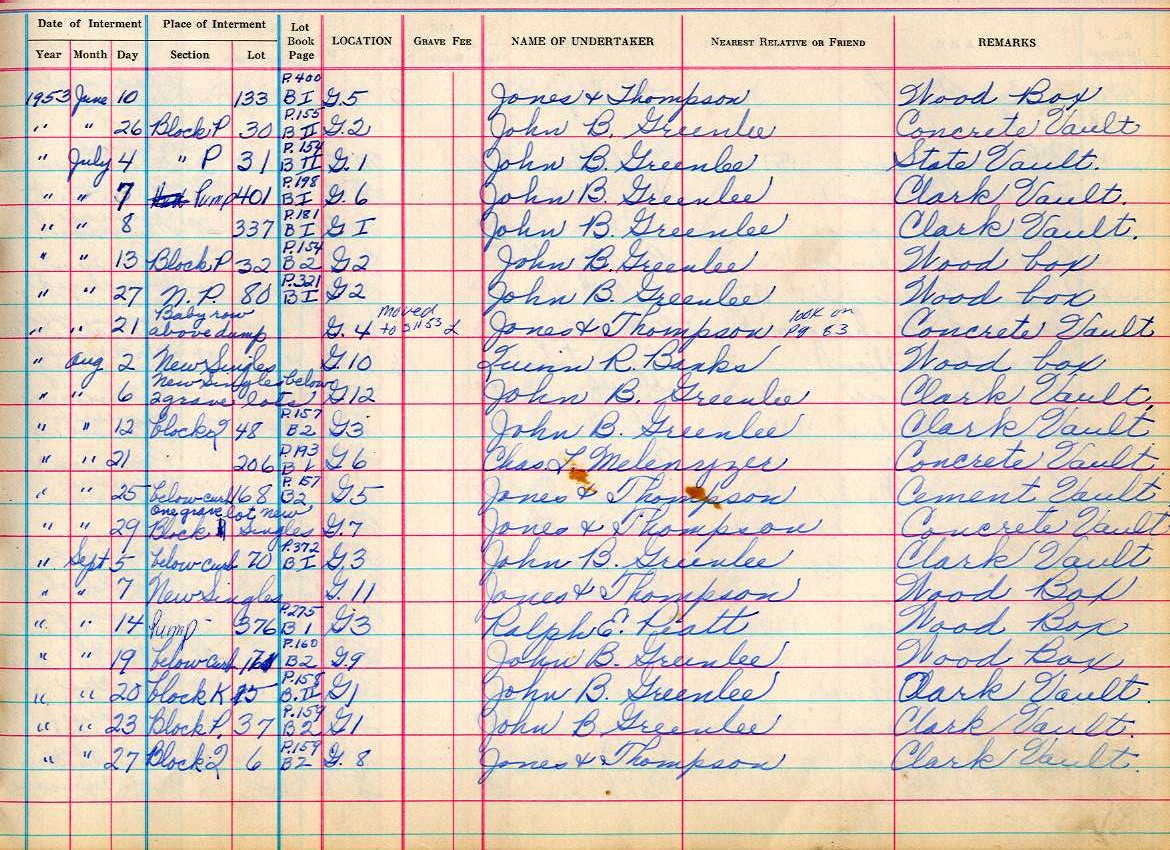 Date of Interment Place of Interment Lot Book Page LOCATION GRAVE FEE NAME OF UNDERTAKER NEAREST RELATIVE OR FRIEND REMARKS
Year Month Day Section Lot
1953 June 10 133 P.400 B I G.5 Jones & Thompson Wood Box
" " 26 Block P 30 P.155 B II G.2 John B. Greenlee Concrete Vault
" July 4 " P 31 P.154 B II G.1 John B. Greenlee State Vault.
" " 7 Pump 401 P.198 B I G.6 John B. Greenlee Clark Vault.
" " 8 337 P.181 B I G I John B. Greenlee Clark Vault.
" " 13 Block P 32 P.154 B2 G2 John B. Greenlee Wood box
" " 27 N.P. 80 P.321 B I G2 John B. Greenlee Wood box
" " 21 Baby row above dump G.4 moved to 5 11 53 Jones & Thompson look on pg 53 Concrete Vault
" Aug 2 New Singles G.10 Quinn R. Banks Wood box
" " 6 New Singles below 2 grave lots G12 John B. Greenlee Clark Vault.
" " 12 block 2 48 P.157 B2 G3 John B. Greenlee Clark Vault
" " 21 206 P.193 B 1 G6 Chas. L. Melenyzer Concrete Vault
" " 25 below curb 168 P.157 B2 G.5 Jones & Thompson Cement Vault
" " 29 One grave lot new Block Singles G.7 Jones & Thompson Concrete Vault
" Sept. 5 below curb 70 P.372 B I G.3 John B. Greenlee Clark Vault
" " 7 New Singles G.11 Jones & Thompson Wood Box
" " 14 Pump 376 P.275 B 1 G3 Ralph E. Piatt Wood Box
" " 19 below curb P.160 B2 G.9 John B. Greenlee Wood Box
" " 20 block K 15 P.158 B.II G1 John B. Greenlee Clark Vault.
" " 23 Block P. 37 P.159 B2 G1 John B Greenlee Clark Vault.
" " 27 Block 2 6 P.159 B2 G.8 Jones & Thompson Clark Vault.